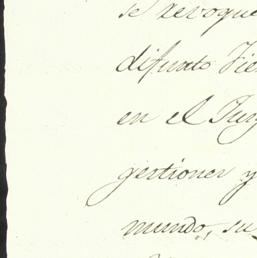 se revoque
difunto
en el
gestiones y
mundo, su